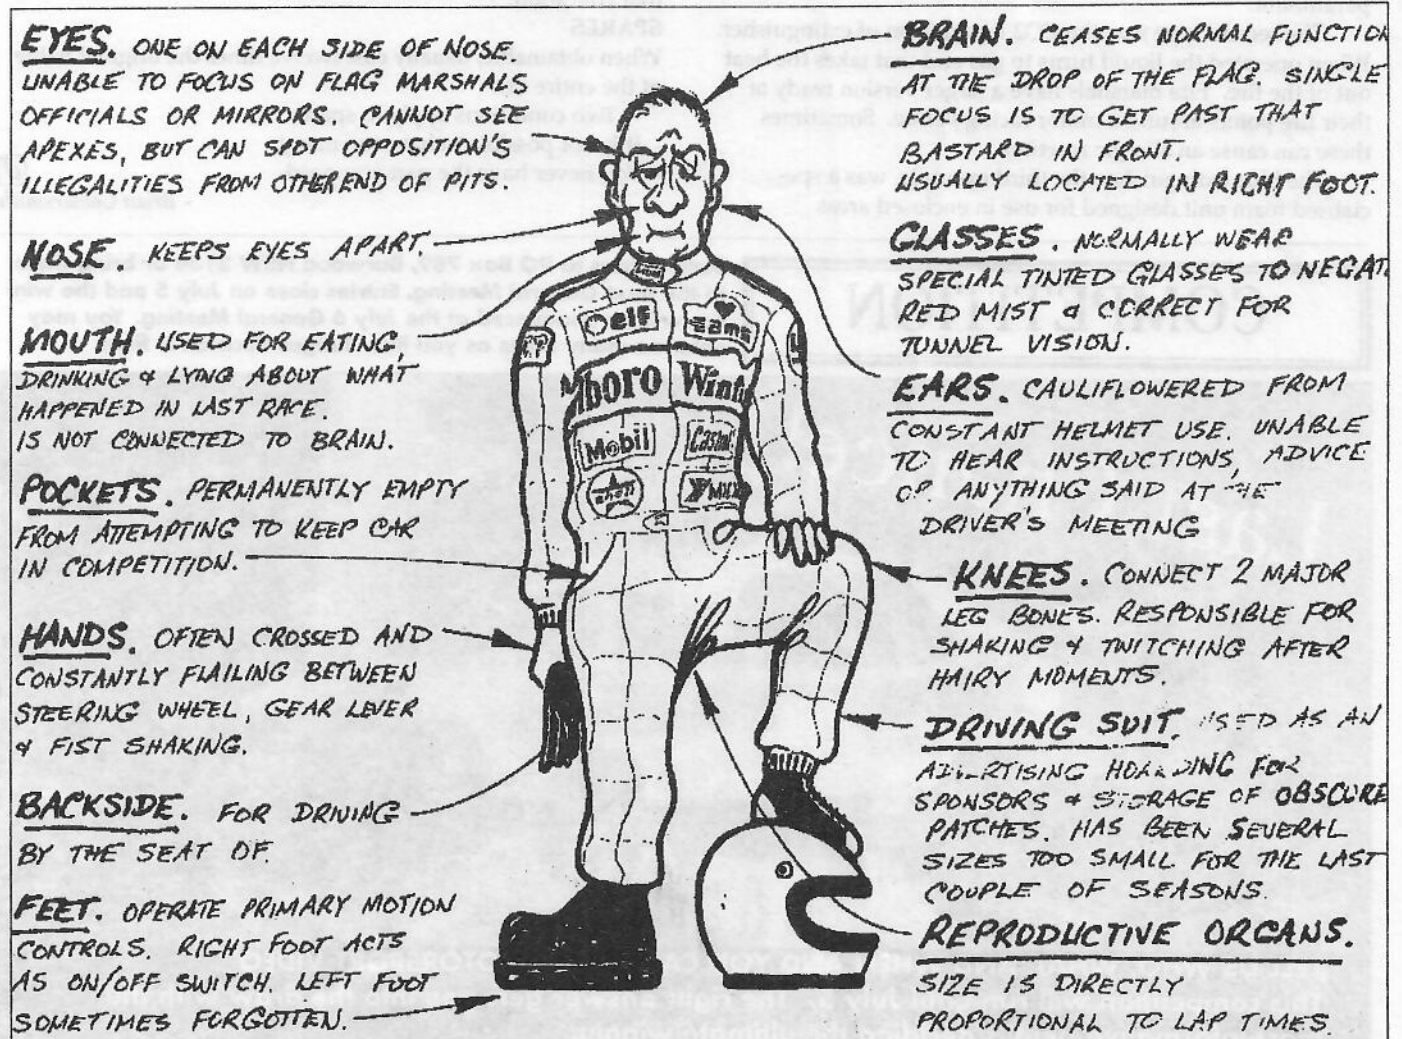 EYES. ONE ON EACH SIDE OF NOSE.
UNABLE TO FOCUS ON FLAG MARSHALS
OFFICIALS OR MIRRORS. CANNOT SEE
APEXES, BUT CAN SPOT OPPOSITION'S
ILLEGALITIES FROM OTHER END OF PITS.
NOSE. KEEPS EYES APART
MOUTH. USED FOR EATING,
DRINKING & LYING ABOUT WHAT
HAPPENED IN LAST RACE.
IS NOT CONNECTED TO BRAIN.
POCKETS. PERMANENTLY EMPTY
FROM ATTEMPTING TO KEEP CAR
IN COMPETITION.
HANDS. OFTEN CROSSED AND
CONSTANTLY FLAILING BETWEEN
STEERING WHEEL, GEAR LEVER
& FIST SHAKING.
BACKSIDE. FOR DRIVING
BY THE SEAT OF.
FEET. OPERATE PRIMARY MOTION
CONTROLS. RIGHT FOOT ACTS
AS ON/OFF SWITCH. LEFT FOOT
SOMETIMES FORGOTTEN.
elf
cams
lboro Wint
Mobil
Castrol
BRAIN. CEASES NORMAL FUNCTION
AT THE DROP OF THE FLAG. SINGLE
FOCUS IS TO GET PAST THAT
BASTARD IN FRONT.
USUALLY LOCATED IN RIGHT FOOT.
GLASSES. NORMALLY WEAR
SPECIAL TINTED GLASSES TO NEGAT
RED MIST & CORRECT FOR
TUNNEL VISION.
EARS. CAULIFLOWERED FROM
CONSTANT HELMET USE. UNABLE
TO HEAR INSTRUCTIONS, ADVICE
OR ANYTHING SAID AT THE
DRIVER'S MEETING
KNEES. CONNECT 2 MAJOR
LEG BONES. RESPONSIBLE FOR
SHAKING & TWITCHING AFTER
HAIRY MOMENTS.
DRIVING SUIT. USED AS AN
ADVERTISING HOARDING FOR
SPONSORS & STORAGE OF OBSCURE
PATCHES. HAS BEEN SEVERAL
SIZES TOO SMALL FOR THE LAST
COUPLE OF SEASONS.
REPRODUCTIVE ORGANS.
SIZE IS DIRECTLY
PROPORTIONAL TO LAP TIMES.